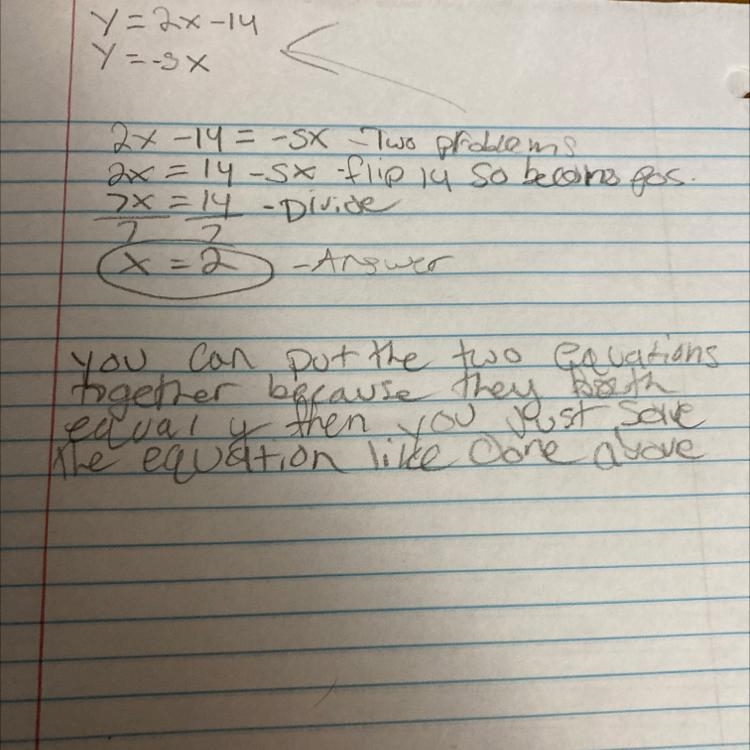 y = 2x - 14
y = -5x
2x - 14 = -5x - Two problems
2x = 14 - 5x - flip 14 so becoms pos.
7x = 14 - Divide
7 7
x = 2 - Answer
you can put the two equations
together because they both
equal y then you just solve
the equation like done above